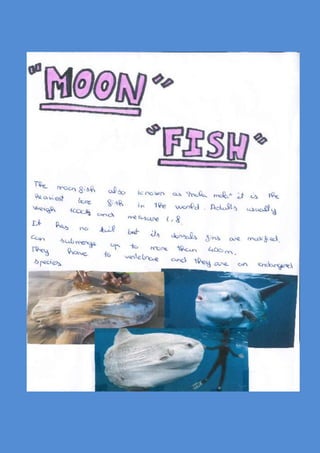 "MOON"
"FISH"
The moonfish also known as "mola mola" it is the
heaviest bone fish in the world. Adults usually
weigh 1000kg and measure 1,8
It has no tail but its dorsals fins are modified.
can submerge up to more than 400m.
They have to vertebrae and they are an endangered
species.